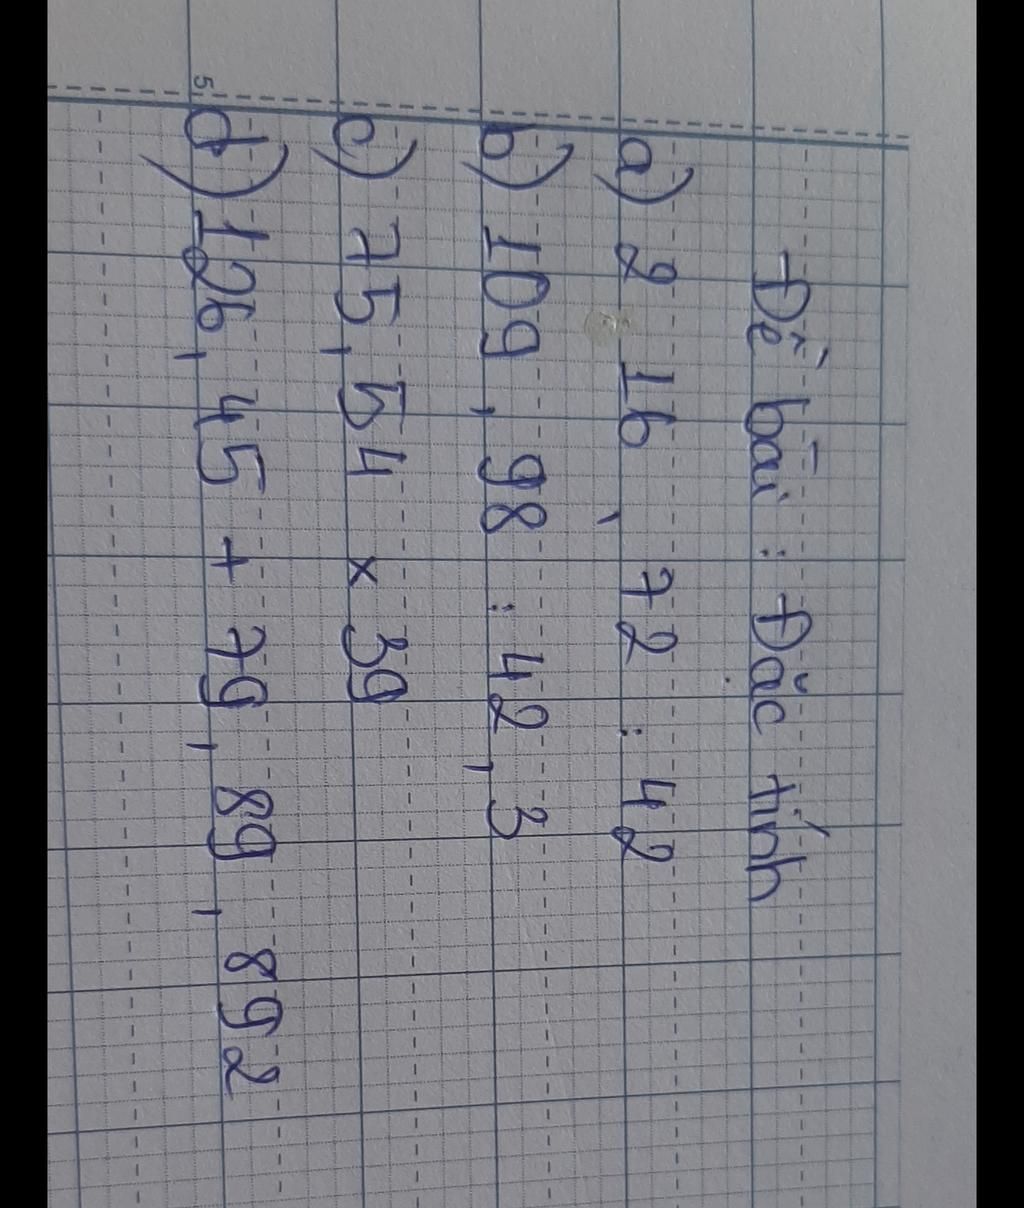 Đề bài : Đặc tính
a) 216,72 : 42
b) 109,98 : 42,3
c) 75,54 x 39
d) 126,45 + 79,89,892
5